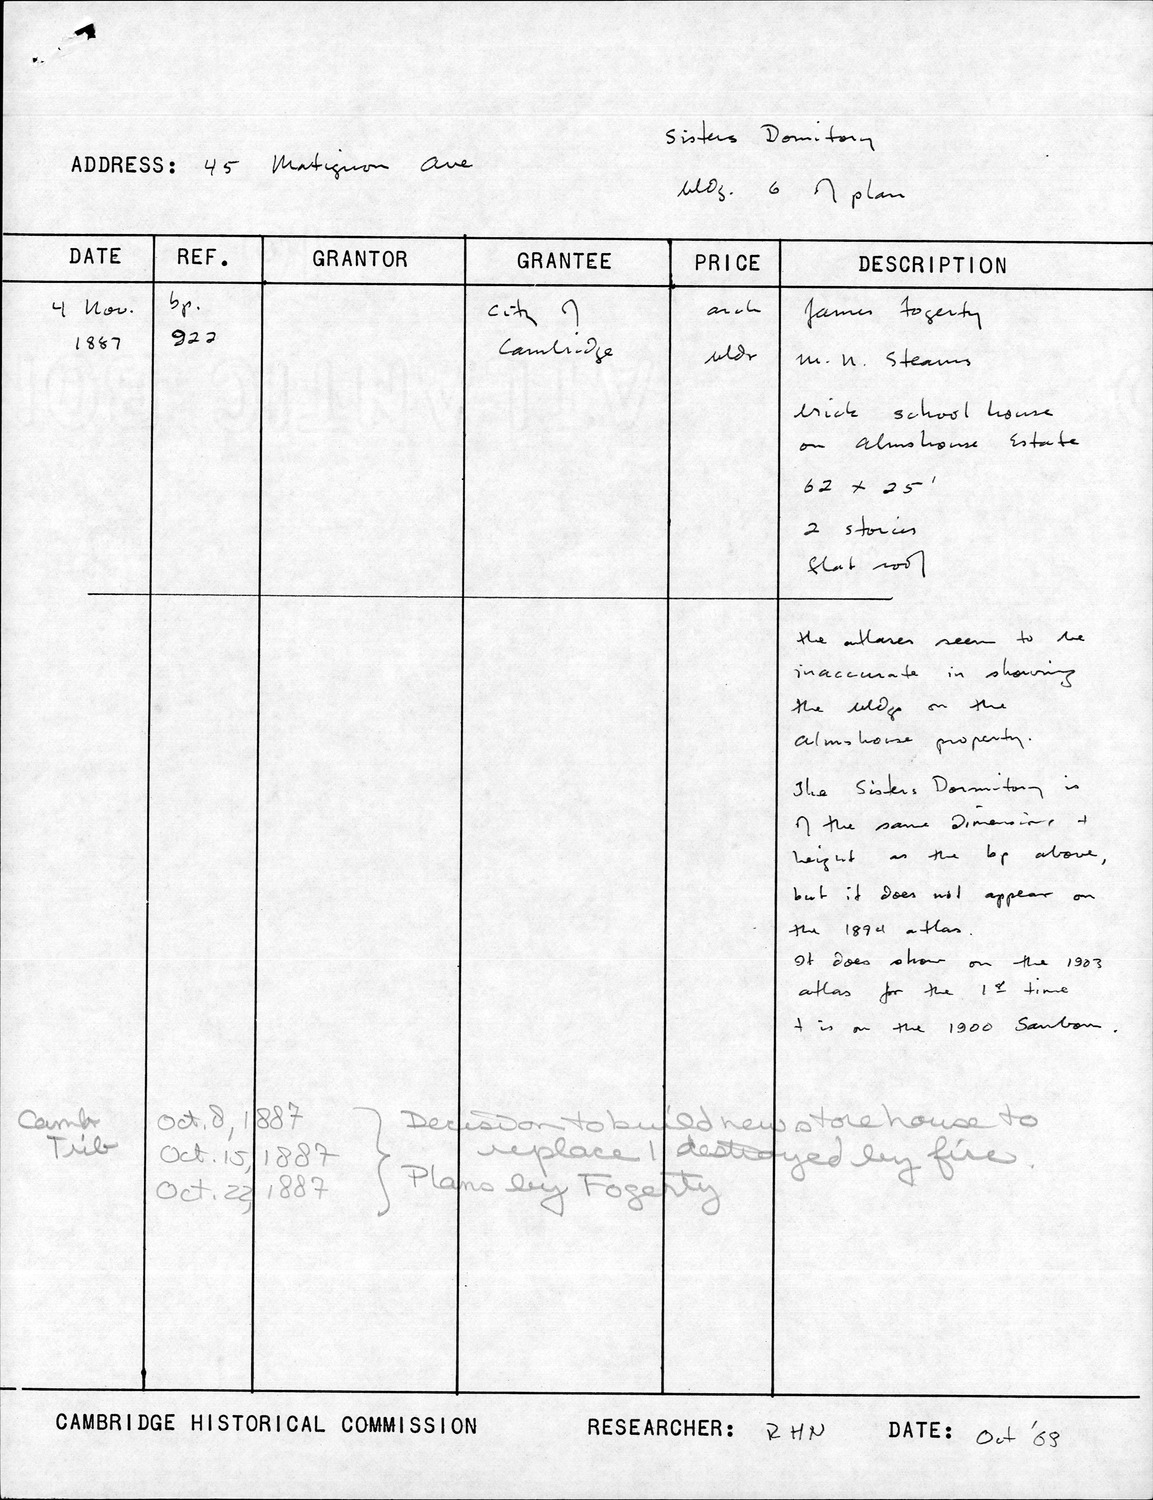 Sisters Domitory
ADDRESS: 45 Matignon Ave
bldg. 6 of plan
DATE REF. GRANTOR GRANTEE PRICE DESCRIPTION
4 Nov. bp. City of arch James Fogerty
1887 922 Cambridge bldr M. N. Stearns
brick school house
on Almshouse Estate
62 x 25'
2 stories
flat roof
the atlases seem to be
inaccurate in showing
the bldgs on the
almshouse property.
The Sisters Dormitory is
of the same dimensions +
height as the bp above,
but it does not appear on
the 1894 atlas.
It does show on the 1903
atlas for the 1st time
+ is on the 1900 Sanborn.
Camb Oct. 8, 1887 Decision to build new storehouse to
Trib Oct. 15, 1887 replace 1 destroyed by fire.
Oct. 22, 1887 Plans by Fogerty
CAMBRIDGE HISTORICAL COMMISSION RESEARCHER: RHN DATE: Oct '69